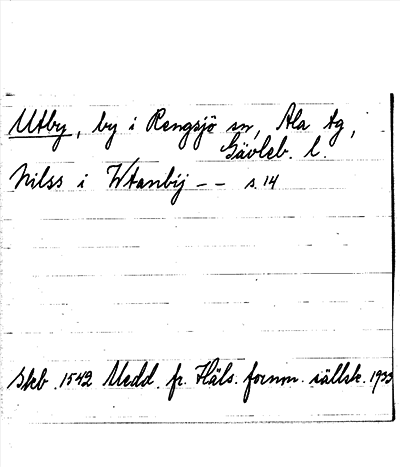 Utby, by i Rengsjö sn, Ala tg,
Gävleb. l.
Nilss i Wtanbÿ -- s. 14
Skb. 1542 Medd. fr. Häls. fornm. sällsk. 1933